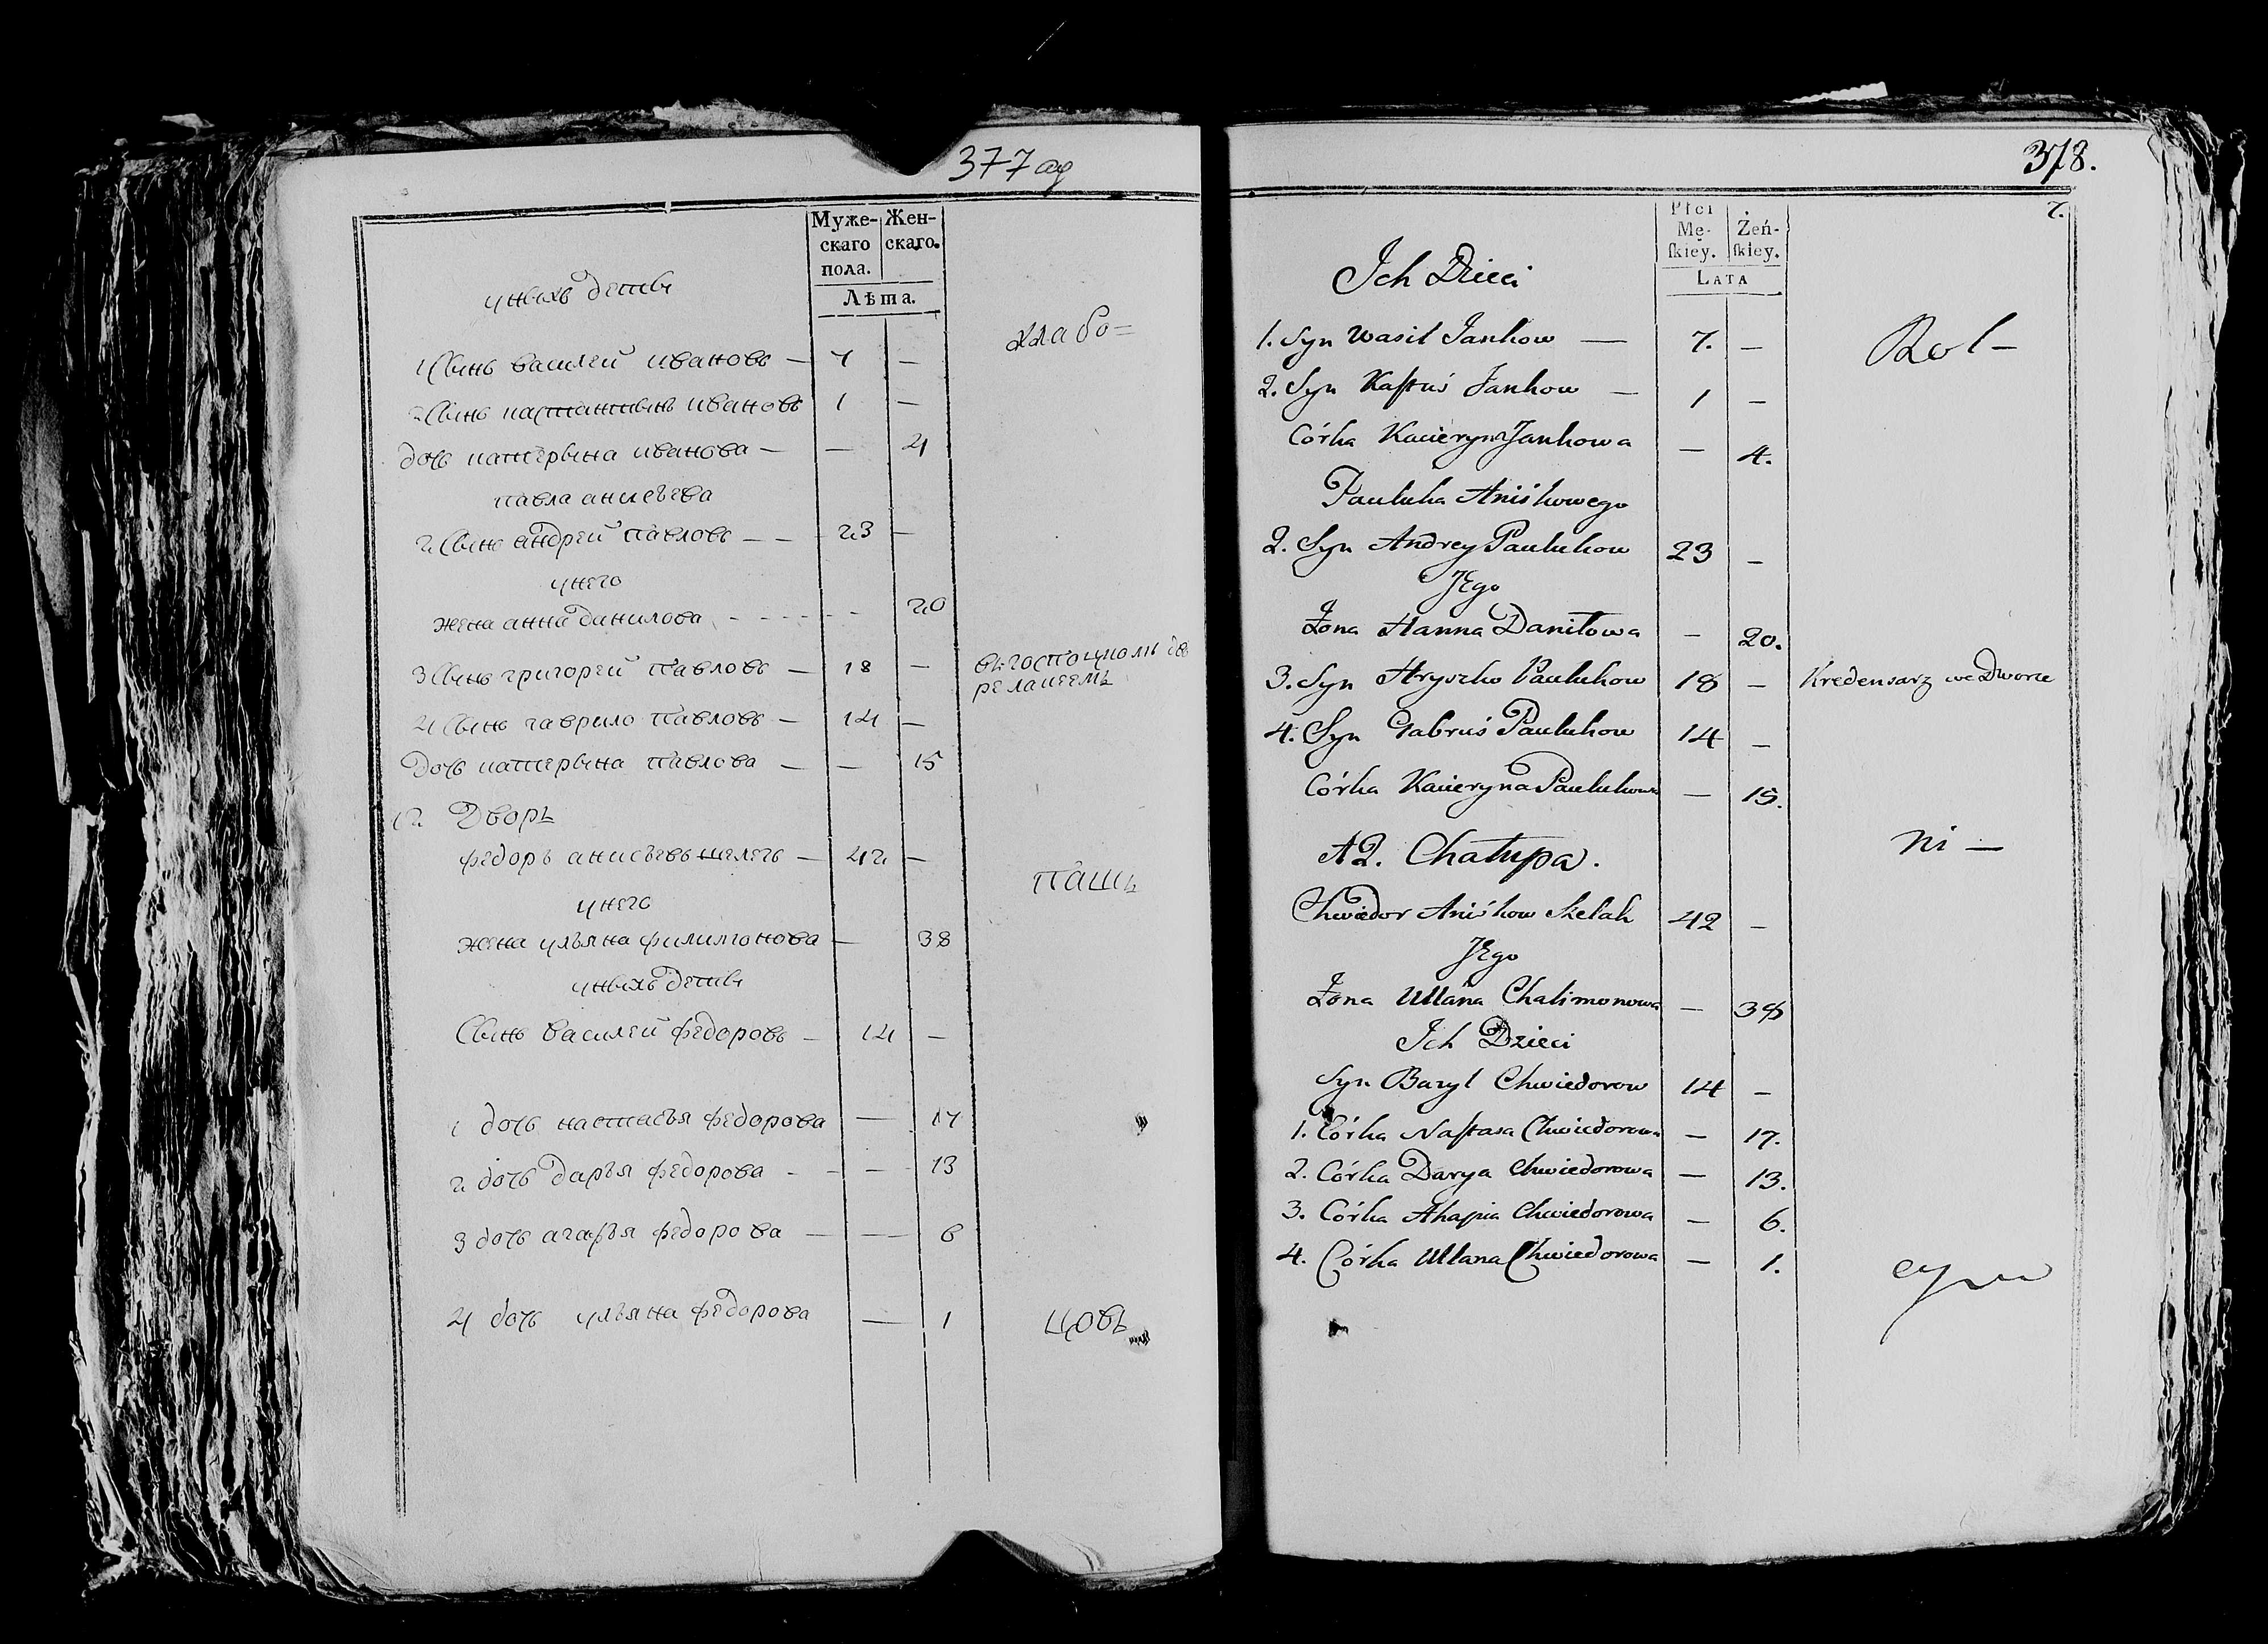 377 об
Муже-
скаго
пола.
Жен-
скаго.
Лѣта.
уныхъ дети
хлабо=
1 Сынъ василей ивановъ — 7 —
2 Сынъ кастантынъ ивановъ 1 —
дочь катерына иванова — — 4
павла анисьева
2 Сынъ андрей павловъ — — 23 —
унего
жена анна данилова 20
3 Сынъ григорей павловъ — 18 —
4 Сынъ гаврило павловъ — 14 —
дочь катерына павлова — — 15
Дворъ
федоръ анисьевъ шелегъ — 42 —
пашъ
унего
жена ульяна филимонова — 38
уныхъ дети
Сынъ василей федоровъ — 14 —
1 дочь настасья федорова — 17
2 дочь дарья федорова — — 13
3 дочь агапья федорова — — 6
4 дочь ульяна федорова — 1
цовъ
378.
7.
Płci
Mę-
skiey.
Żeń-
skiey.
LATA
Ich Dzieci
1. Syn Wasil Jankow — 7. —
Rol-
2. Syn Kastuś Jankow — 1 —
Córka Kacieryna Jankowa — 4.
Pauluka Aniśkowego
2. Syn Andrey Paulukow 23 —
JEgo
Żona Hanna Daniłowa — 20.
3. Syn Hryszko Paulukow 18 — Kredensarz we Dworze
4. Syn Gabruś Paulukow 14 —
Córka Kacieryna Paulukowa — 15.
A2. Chałupa.
ni —
Chwiedor Aniśkow Szelah 42 —
JEgo
Żona Ullana Chalimonowa — 38
Ich Dzieci
Syn Bazyl Chwiedorow 14 —
1. Córka Nastasa Chwiedorowa — 17.
2. Córka Darya Chwiedorowa — 13.
3. Córka Ahapia Chwiedorowa — 6.
4. Córka Ullana Chwiedorowa — 1.